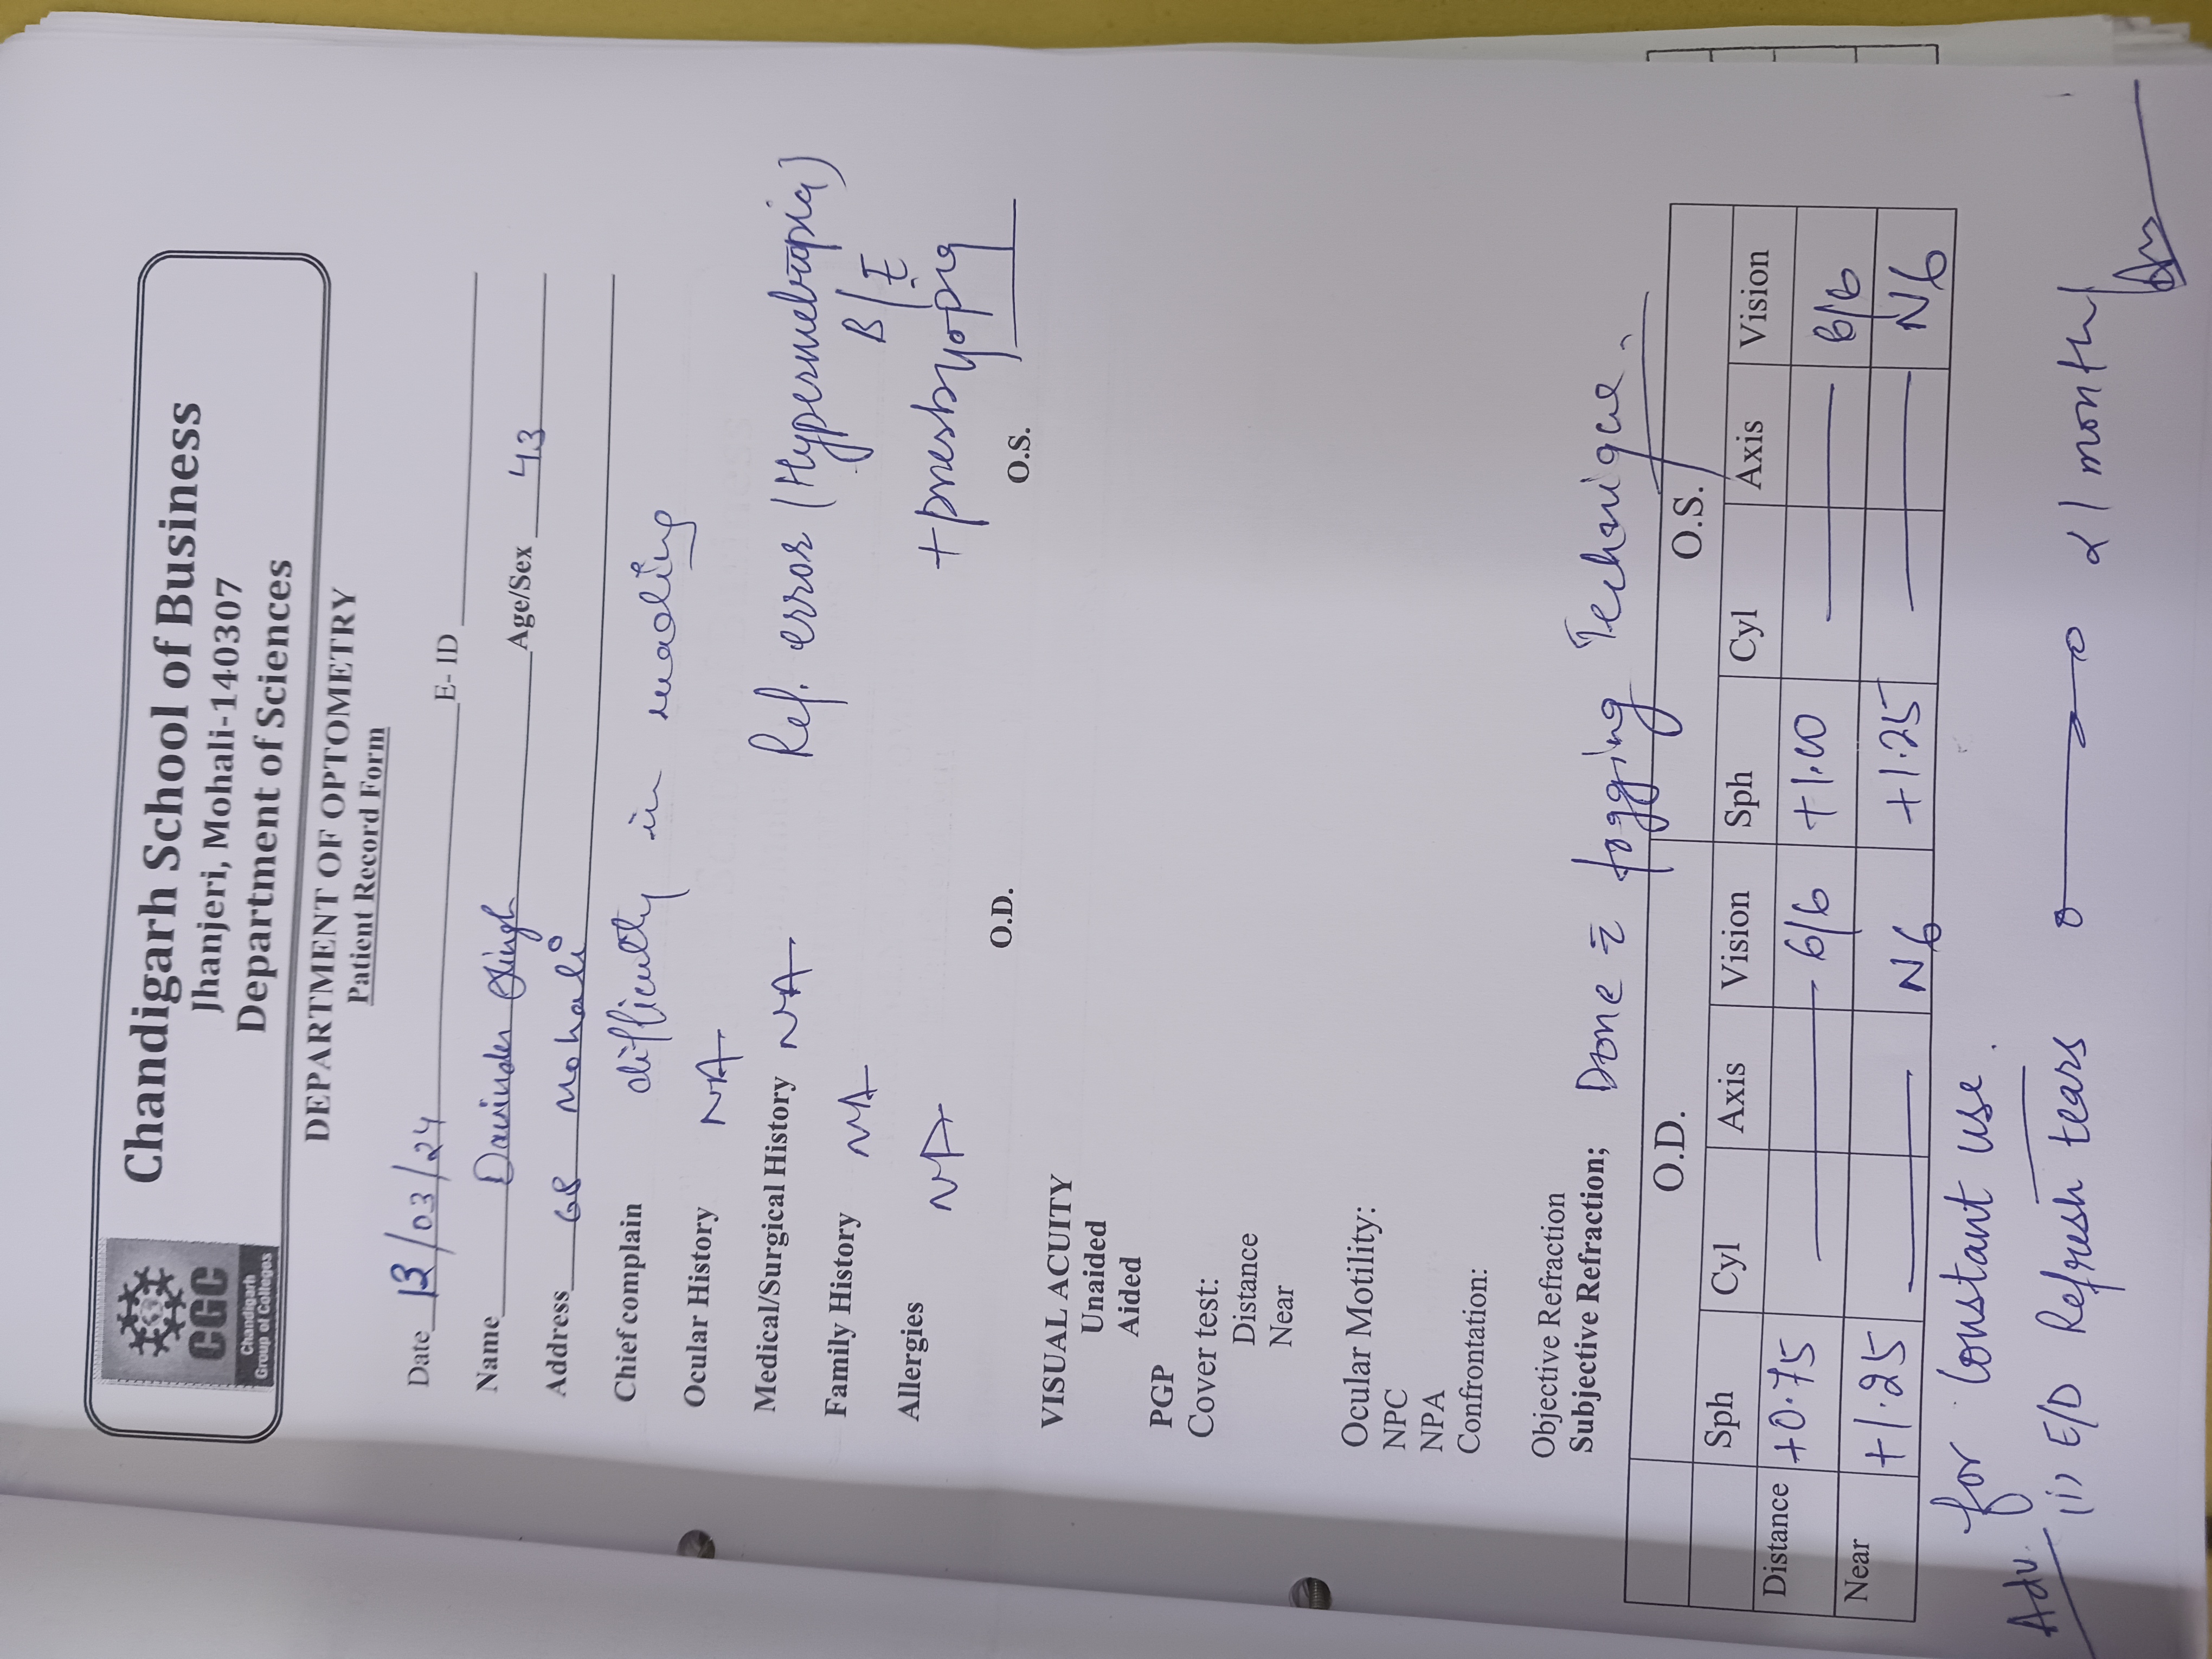 CGC
Chandigarh
Group of Colleges
Chandigarh School of Business
Jhanjeri, Mohali-140307
Department of Sciences
DEPARTMENT OF OPTOMETRY
Patient Record Form
Date 13/03/24 E- ID
Name Davinder Singh Age/Sex 43
Address 68 Mohali
Chief complain difficulty in reading
Ocular History NA
Medical/Surgical History NA Ref. error (Hypermetropia)
Family History NA B/E
Allergies NA +presbyopia
O.D. O.S.
VISUAL ACUITY
Unaided
Aided
PGP
Cover test:
Distance
Near
Ocular Motility:
NPC
NPA
Confrontation:
Objective Refraction
Subjective Refraction; Done c̄ fogging Technique.
O.D. O.S.
Sph Cyl Axis Vision Sph Cyl Axis Vision
Distance +0.75 6/6 +1.00 6/6
Near +1.25 N6 +1.25 N6
for Constant use.
Adv.
(i) E/D Refresh tears 1 month